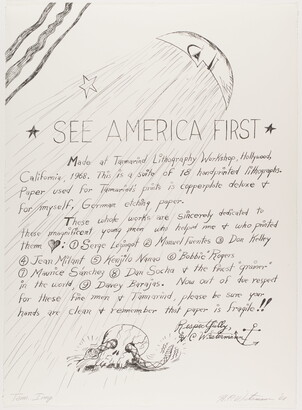 ★ SEE AMERICA FIRST ★
Made at Tamarind Lithography Workshop, Hollywood,
California, 1968. This is a suite of 18 handprinted lithographs.
Paper used for Tamarind's prints is copperplate deluxe &
for myself, German etching paper.
These whole works are sincerely dedicated to
these magnificent young men who helped me & who printed
them ♥: ① Serge Lozingot ② Manuel Fuentes ③ Don Kelley
④ Jean Milant ⑤ Kenjilo Nanao ⑥ "Bobbie" Rogers
⑦ Maurice Sánchez ⑧ Dan Socha & the finest "grainer"
in the world, ⑨ Davey Barajas. Now out of due respect
for these fine men & Tamarind, please be sure your
hands are clean & remember that paper is fragile!!
Respectfully,
H.C. Westermann